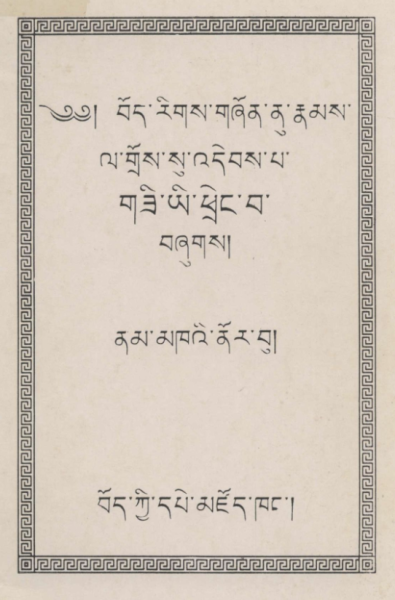 ༄༅། བོད་རིགས་གཞོན་ནུ་རྣམས་
ལ་གྲོས་སུ་འདེབས་པ་
གཟི་ཡི་ཕྲེང་བ་
བཞུགས།
ནམ་མཁའི་ནོར་བུ།
བོད་ཀྱི་དཔེ་མཛོད་ཁང་།